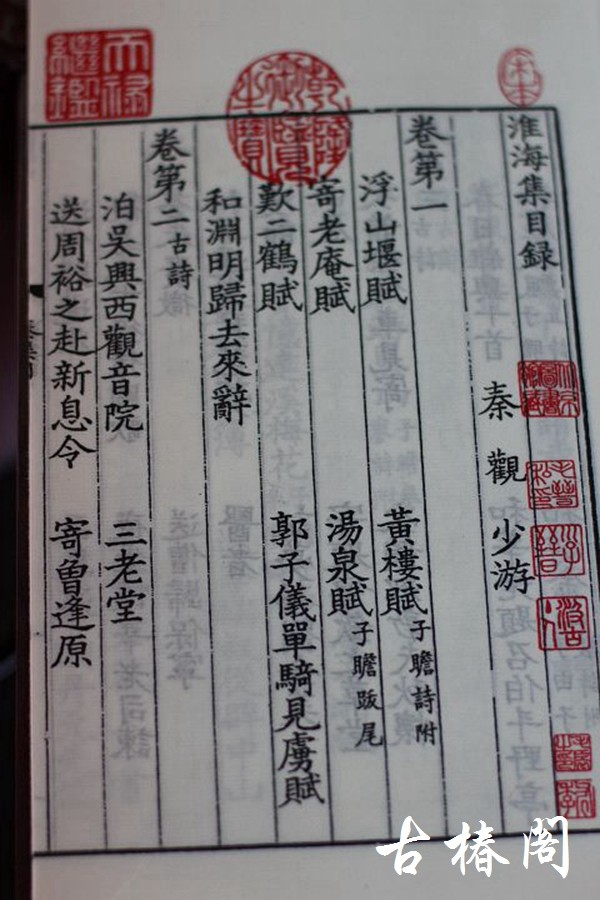 淮海集目録
秦觀 少游
卷第一
浮山堰賦 黃樓賦 子瞻詩附
寄老庵賦 湯泉賦 子瞻跋尾
歎二鶴賦 郭子儀單騎見虜賦
和淵明歸去來辭
卷第二 古詩
泊吳興西觀音院 三老堂
送周裕之赴新息令 寄曾逢原
天祿繼鑑
乾隆御覽之寶
古椿閣